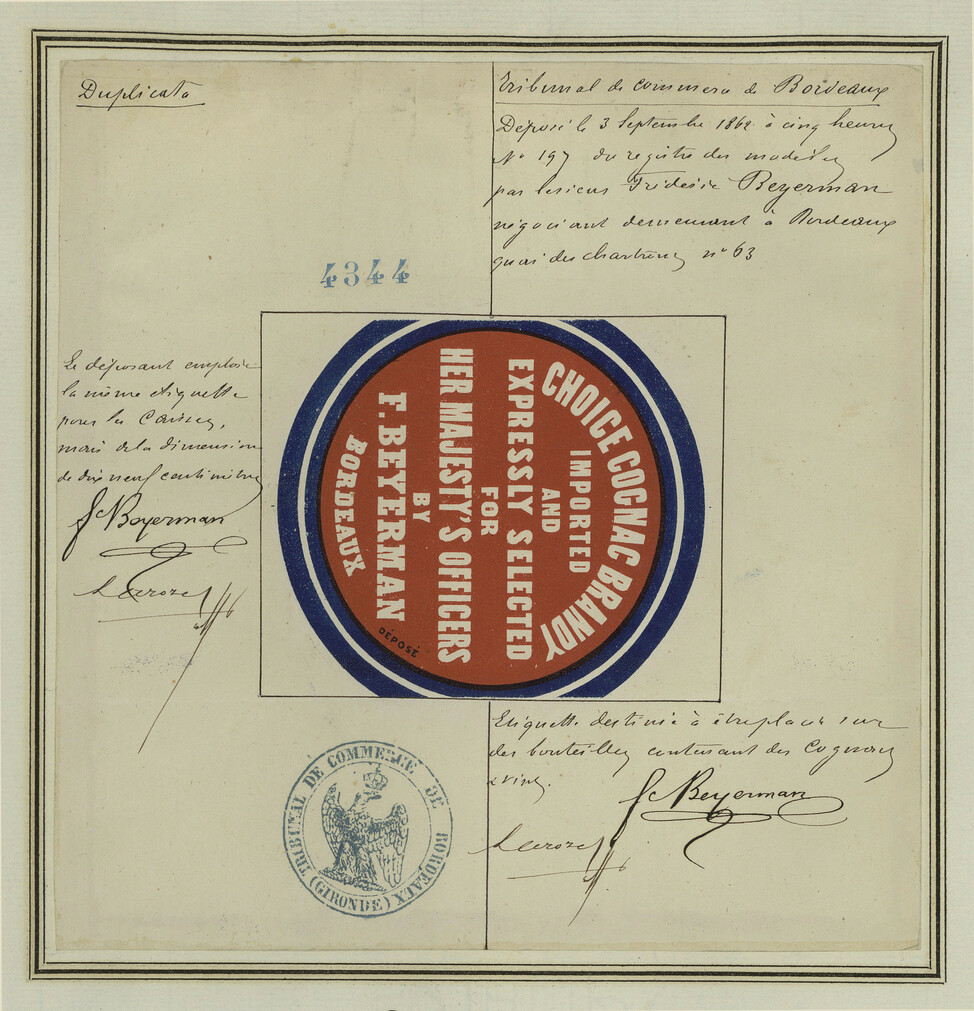 Duplicata
Tribunal de commerce de Bordeaux
Déposé le 3 Septembre 1862 à cinq heures
N° 197 du registre des modèles
par le sieur Frédéric Beyerman
négociant demeurant à Bordeaux
quai des chartrons n° 63
4344
Le déposant emploie
la même étiquette
pour les Caisses,
mais de la dimension
de dix neuf centimètres
fc Beyerman
CHOICE COGNAC BRANDY
IMPORTED
AND
EXPRESSLY SELECTED
FOR
HER MAJESTY'S OFFICERS
BY
F. BEYERMAN
BORDEAUX
DÉPOSÉ
Etiquette destinée à être placée sur
des bouteilles contenant des Cognacs
& vins.
fc Beyerman
TRIBUNAL DE COMMERCE DE BORDEAUX
(GIRONDE)